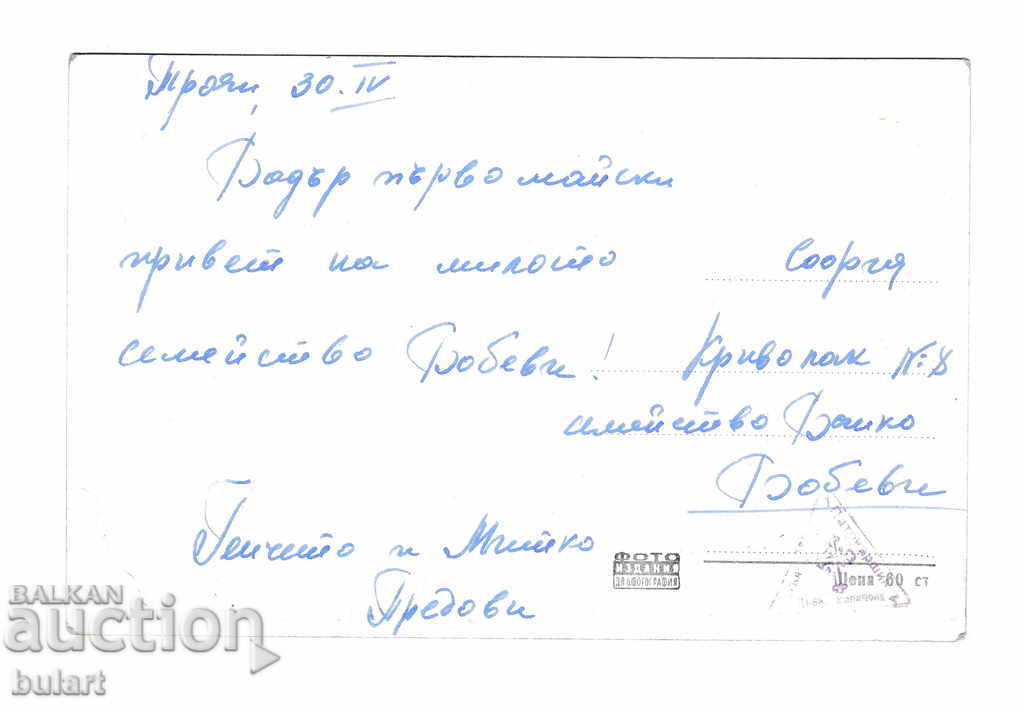 Троян, 30. IV
Бодър първомайски
привет на милото
семейство Бобеви!
Генчето и Митко
Предови
София
Криволак №: 8
семейство Банко
Бобеви
ФОТО
ИЗДАНИЯ
ДП БЪЛФОТОГРАФИЯ
Цена 60 ст
BALKAN
auction
bulart